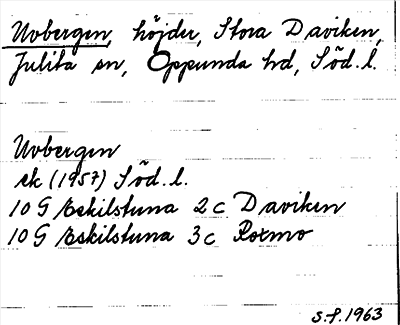 Uvbergen, höjder, Stora Daviken,
Julita sn, Oppunda hd, Söd. l.
Uvbergen
ek (1957) Söd. l.
10 G Eskilstuna 2 c Daviken
10 G Eskilstuna 3 c Roxmo
S.f. 1963